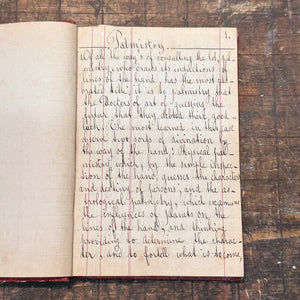 1.
Palmistry.
Of all the way's of consulting the
who its indications of
lines of the hand, has the most
title: it is to palmistry that
the Doctors of art of guessing the
futur that they their good
luck! The most learned in this case
send two sorts of divination by
the way of the hand: Physical pal-
mistry which, by the simple inspec-
tion of the hand, guesses the character
and destiny of persons, and the as-
trological palmistry, which examines
the influences of planets on the
lines of the hand, and thinking
providing to determine the charac-
ter, and to fortell what is to come,